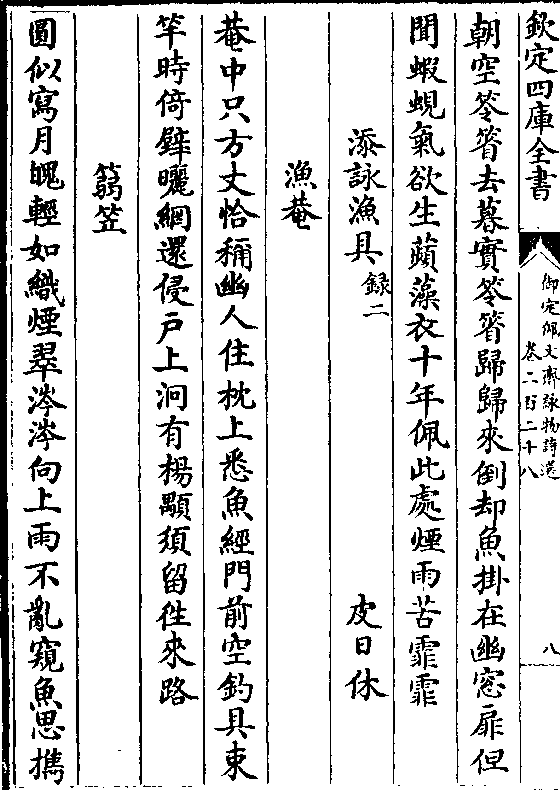 欽定四庫全書
御定佩文齋詠物詩選
卷二百二十八
八
朝空笭箵去暮實笭箵歸歸來倒却魚掛在幽窓扉但
聞蝦蜆氣欲生蘋藻衣十年佩此處煙雨苦霏霏
添詠漁具 録二 皮日休
漁菴
菴中只方丈恰稱幽人住枕上悉魚經門前空釣具束
竿時倚壁曬網還侵戶上洞有楊顒須留徃來路
篛笠
圓似寫月魄輕如織煙翠涔涔向上雨不亂窺魚思擕